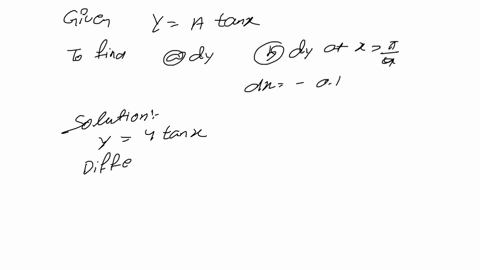 Given Y = A tanx
To find ⓐ dy ⓑ dy at x = π/
dx = - 0.1
Solution:-
Y = 4 tanx
Diffe